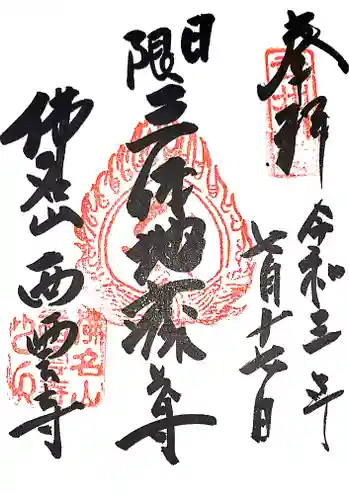 奉拝
令和三年
七月十七日
日限
三体地蔵尊
佛名山
西雲寺